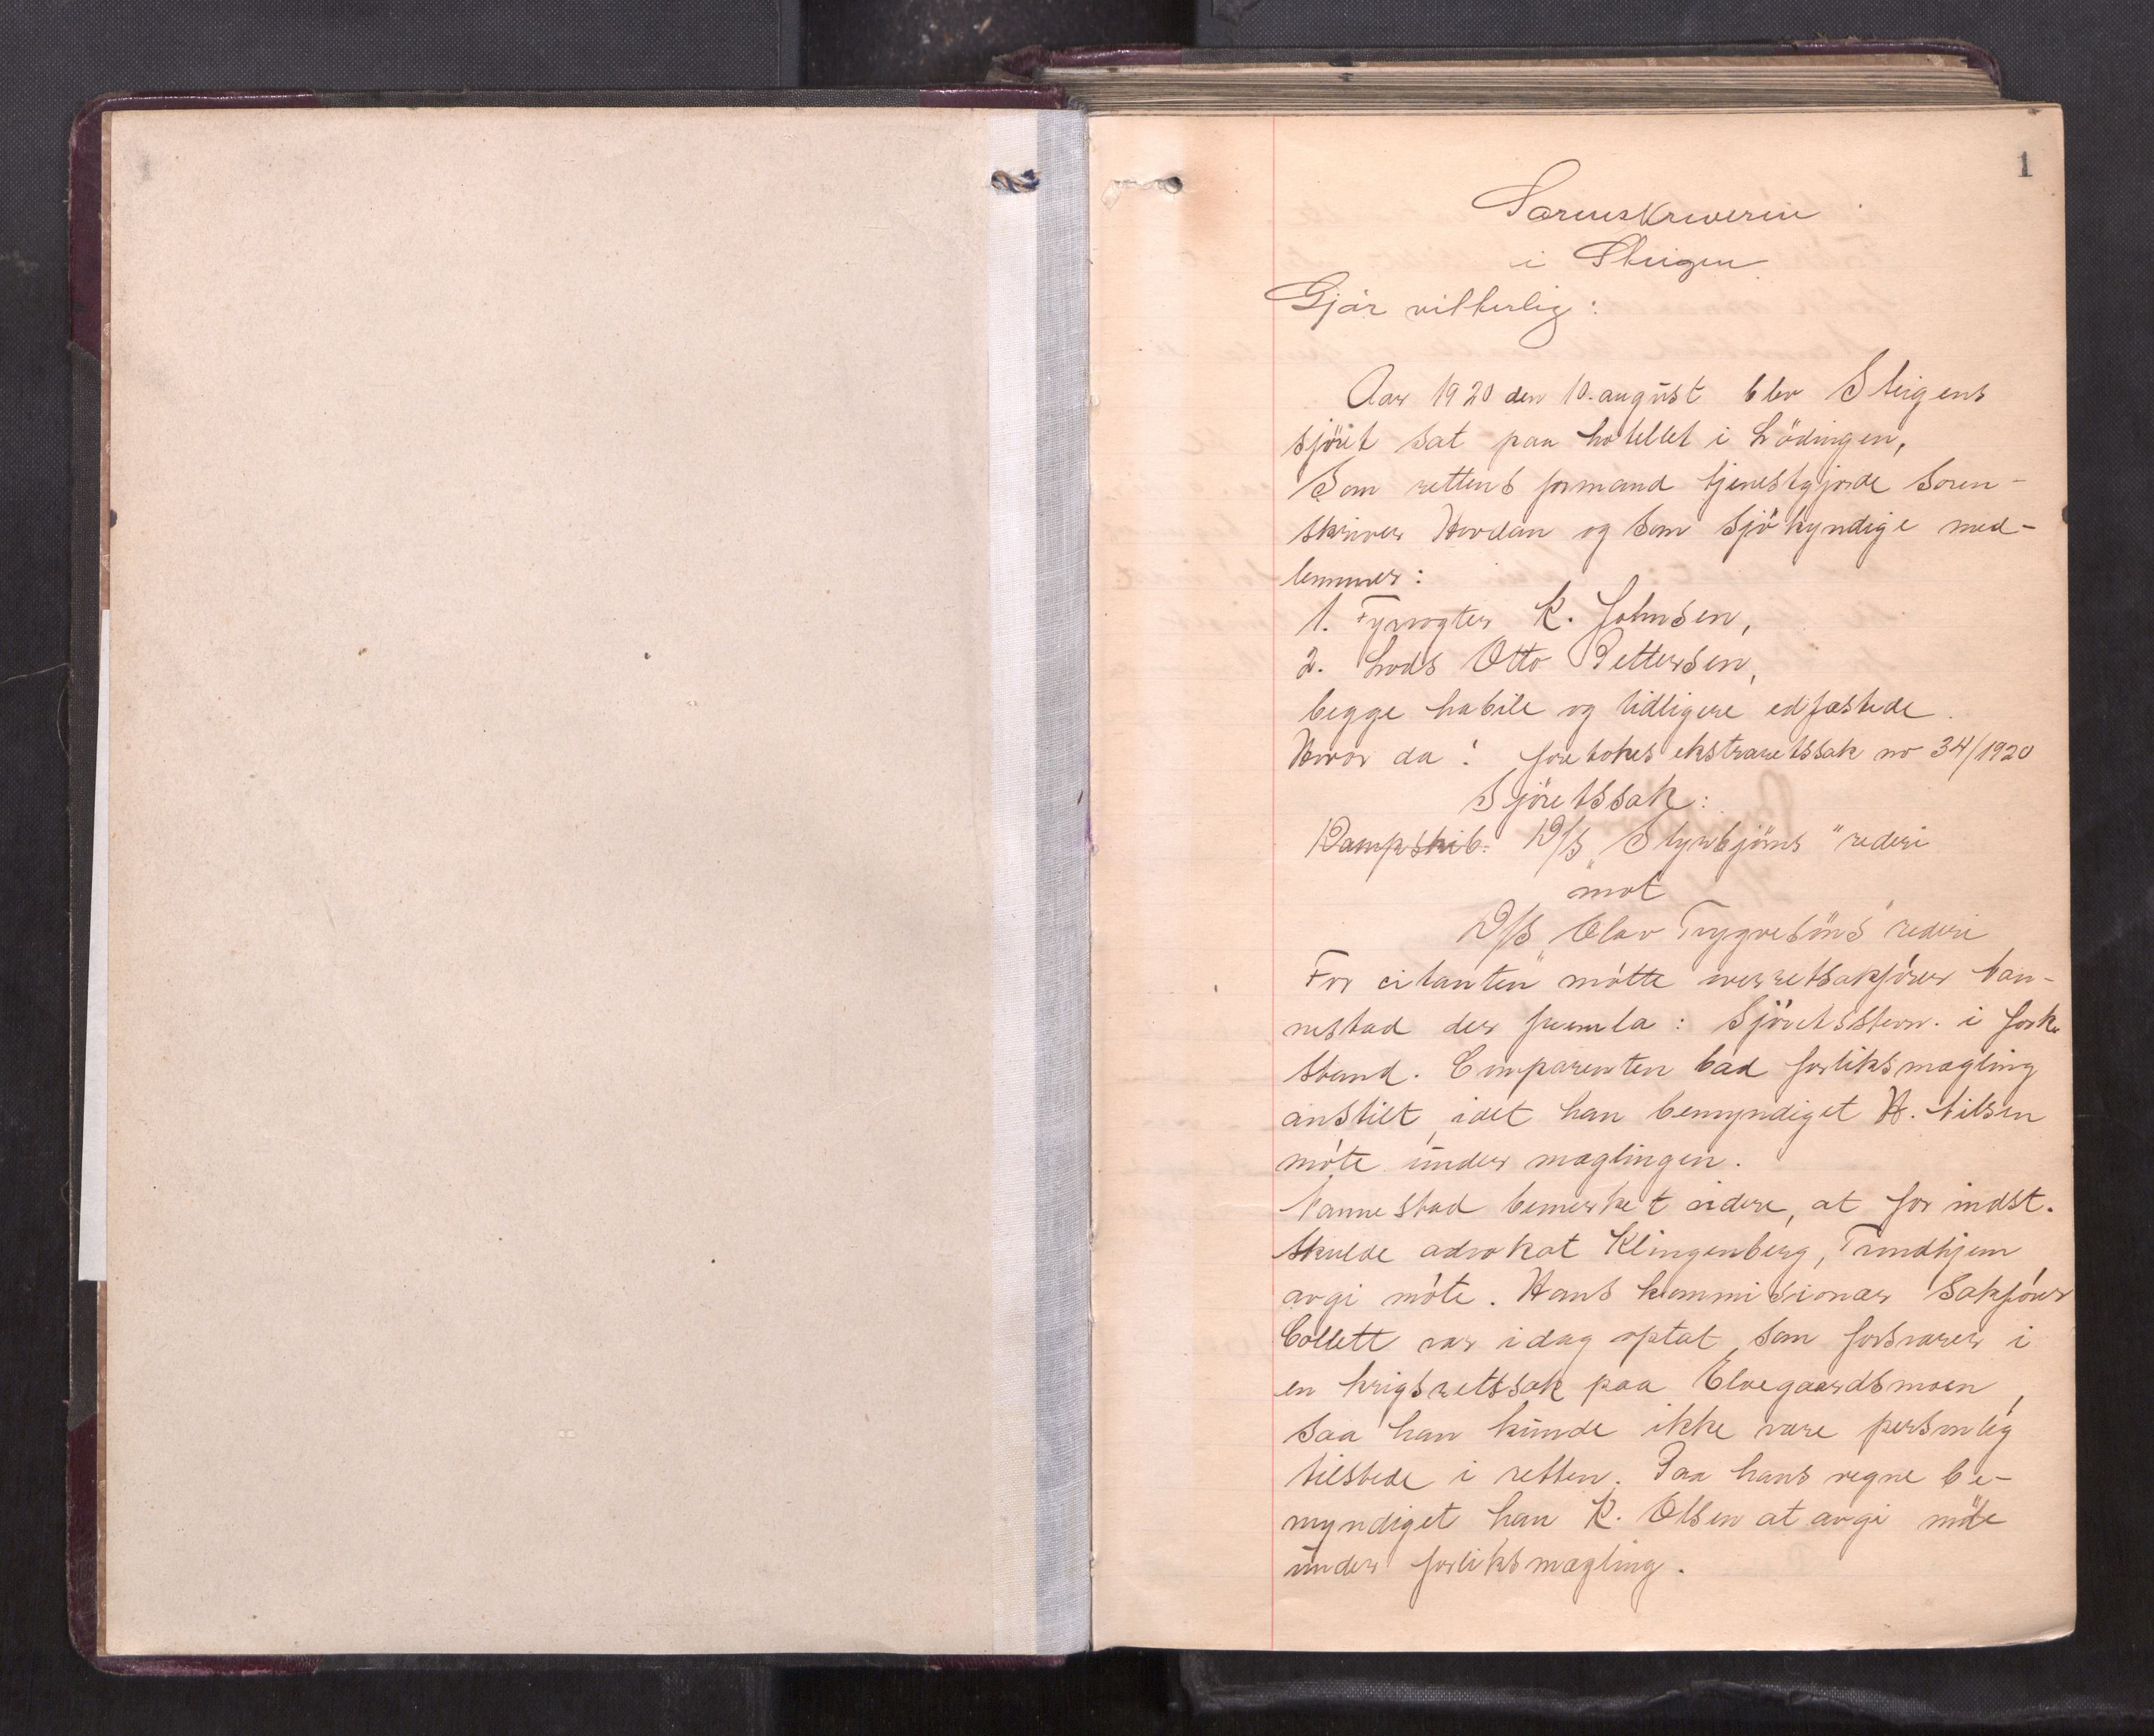 1
Sorenskriveren
i Steigen
Gjör vitterlig:
Aar 1920 den 10. august blev Steigens
sjöret sat paa hotellet i Lödingen,
Som rettens formand tjenestgjorde Soren-
skriver Hovdan og som sjökyndige med-
lemmer:
1. Fyrvogter K. Johnsen,
2. Lods Otto Pettersen,
begge habile og tidligere edfæstede.
Hvor da: foretokes ekstraretssak no 34/1920
Sjöretssak:
Dampskib: D/S "Styrbjörns" rederi
mot
D/S "Olav Trygvesöns" rederi
For citanten mötte overretsakförer Van-
nestad der fremla: Sjöretsstevn. i fork.
stand. Comparenten bad forliksmægling
anstilt, idet han bemyndiget H. Nilsen
möte under mæglingen.
Vannestad bemerket videre, at for indst.
skulde advokat Klingenberg, Trondhjem
avgi möte. Hans kommisionær Sakförer
Collett var idag optat som forsvarer i
en krigsretssak paa Elvegaardsmoen,
saa han kunde ikke være personlig
tilstede i retten. Paa hans vegne be-
myndiget han K. Olsen at avgi möte
under forliksmægling.